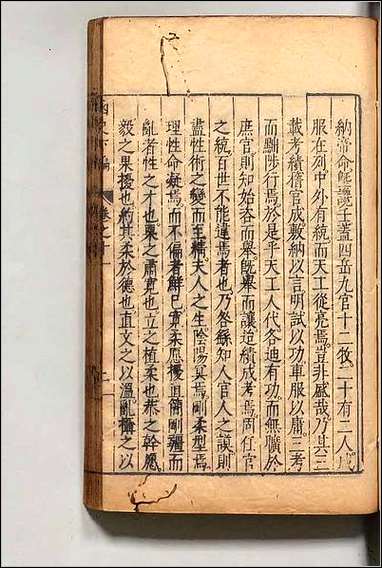 納帝命既讓于蓋四岳九官十二牧二十有二人咸
服在列中外有統而天工從亮焉豈非盛哉乃其三
載考績稽官成敷納以言明試以功車服以庸三考
而黜陟行焉於是乎天工人代各迪有功而無曠於
庶官則知始咨而舉既舉而讓迨績成考焉固任官
之統百世不能違焉者也乃咎繇知人官人之謨則
盡性術之變而主精夫人之生陰陽具焉剛柔型焉
理性命凝焉而不偏者鮮已寬柔愿擾直簡剛彊而
亂者性之才也栗之肅寬也立之植柔也恭之幹愿
毅之果擾也約其柔於德也直文之以溫亂攝之以
函史下編
卷之十一
上